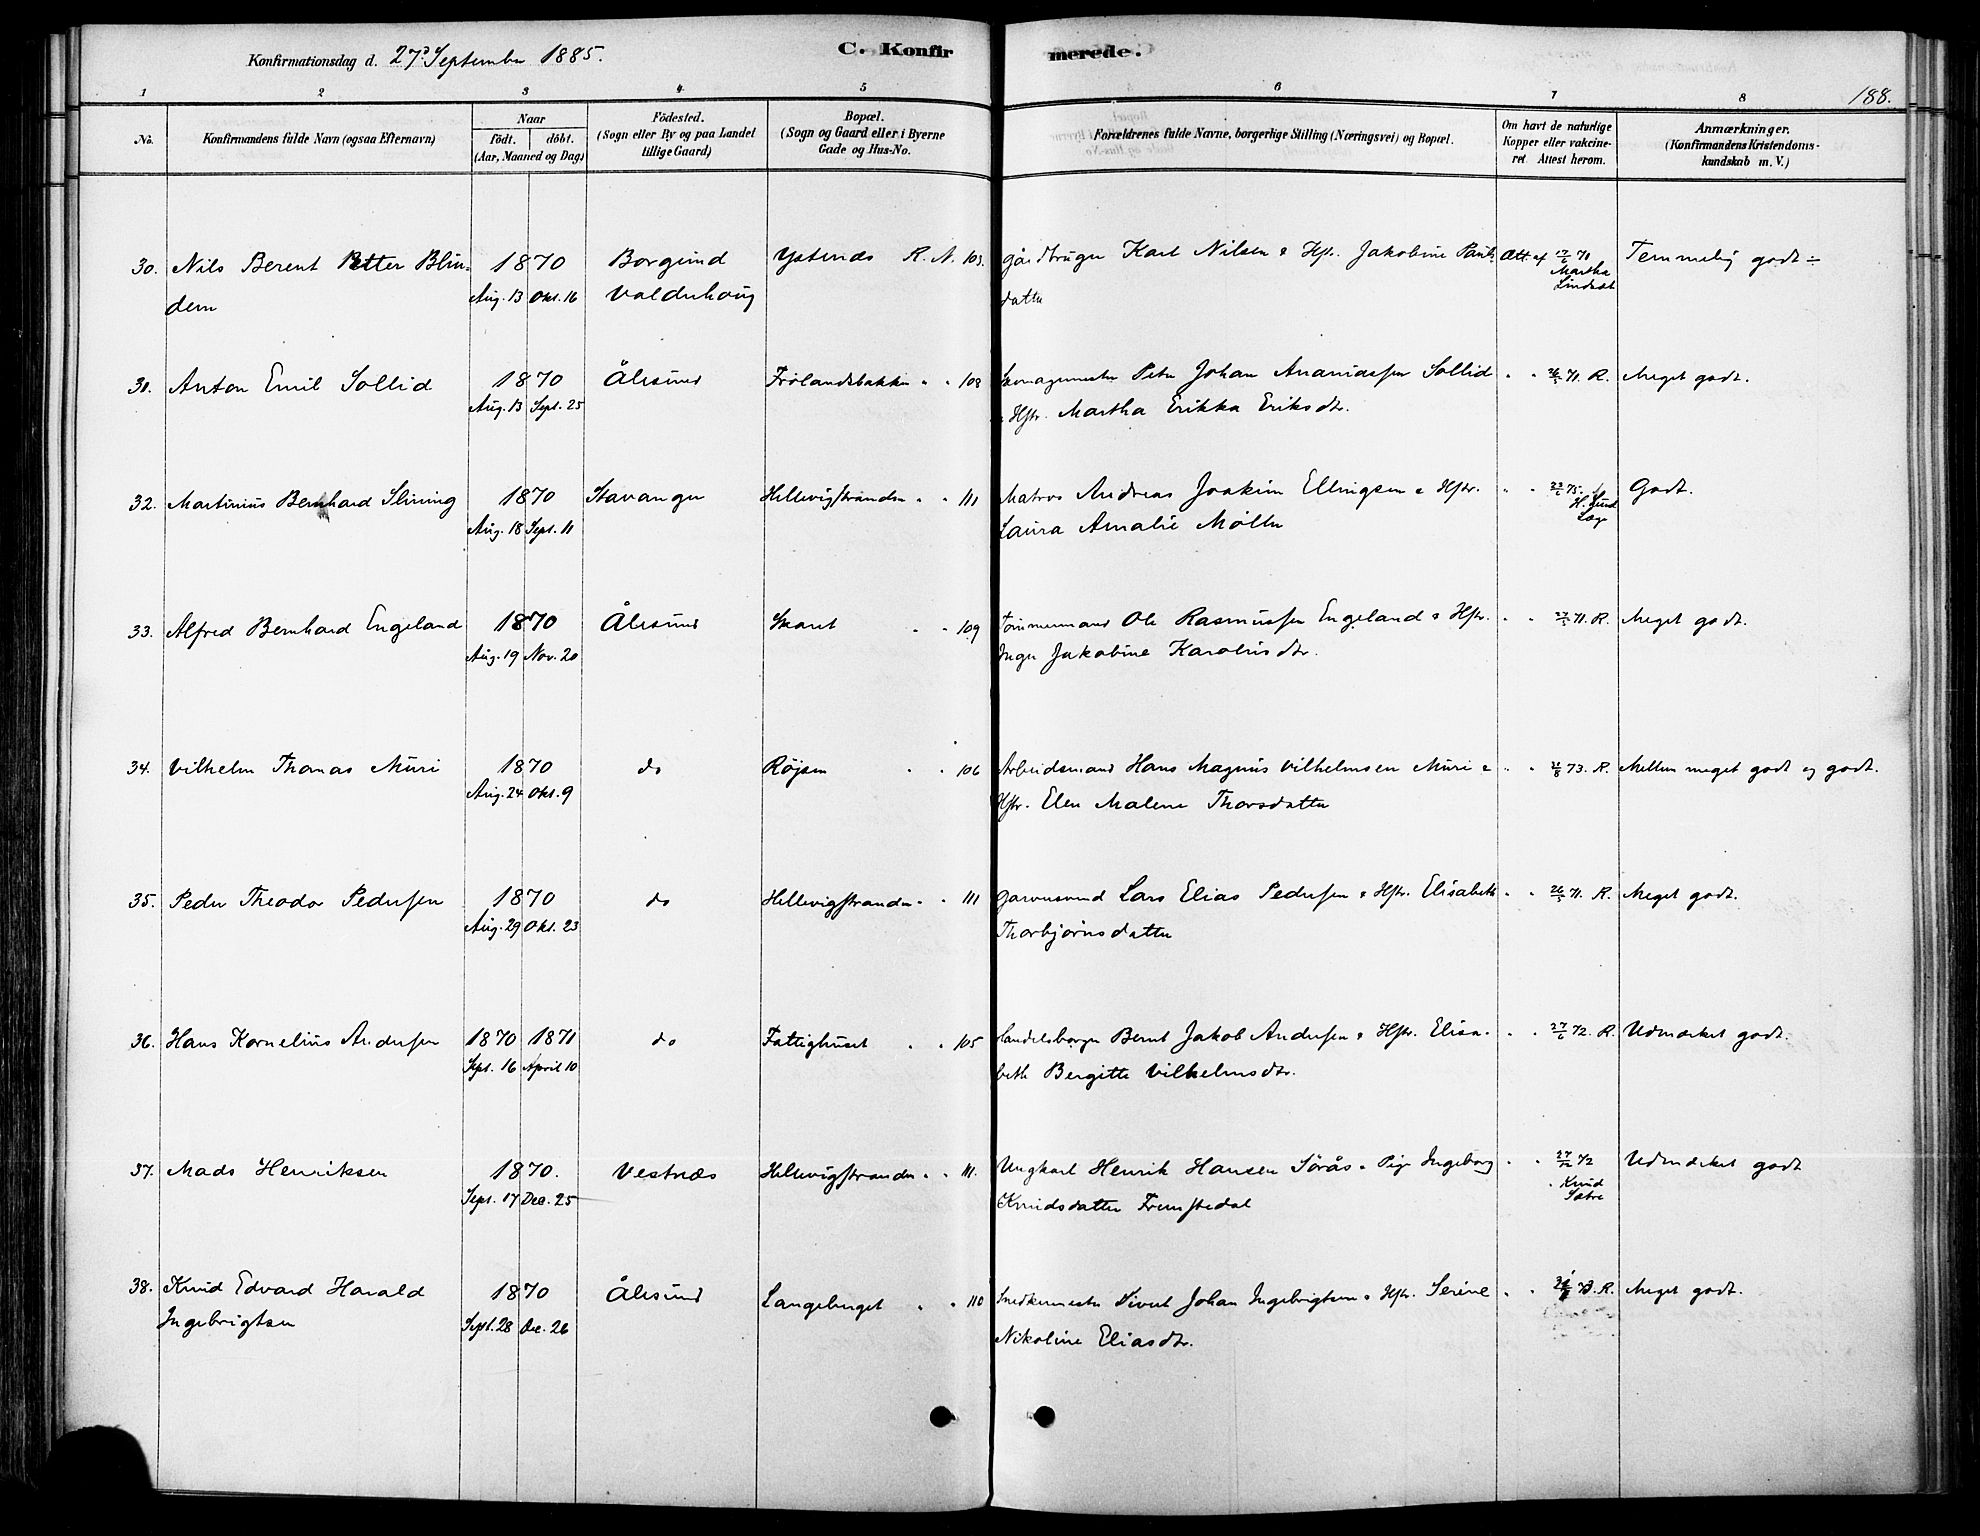 Konfirmationsdag d. 27d September 1885.
C. Konfir merede.
1 2 3 4 5 6 7 8 188.
No. Konfirmandens fulde Navn (ogsaa Efternavn)
Naar
Födt. döbt.
(Aar, Maaned og Dag)
Födested.
(Sogn eller By og paa Landet
tillige Gaard)
Bopæl.
(Sogn og Gaard eller i Byerne
Gade og Hus-No.
Forældrenes fulde Navne, borgerlige Stilling (Næringsvei) og Bopæl.
Om havt de naturlige
Kopper eller vakcine-
ret. Attest herom.
Anmærkninger.
(Konfirmandens Kristendoms-
kundskab m. V.)
30. Nils Berent Petter Blin- 1870 Borgund Ystenæs R. N. 103. Gårdbruger Karl Nilsen & Hstr. Jakobine Pauls Att. af 17/6 71 Temmelig godt ÷
dem Aug. 13 Okt. 16 Valderhoug datter Martha
Lindsæt
31. Anton Emil Sollid 1870 Ålesund Frølandsbakken " " 108 Skomagermester Peter Johan Ananiassen Sollid " " 26/5 71. R. Meget godt.
Aug. 13 Sept. 25 & Hstr. Martha Erikka Eriksdtr.
32. Martinius Bernhard Slining 1870 Stavanger Hellevigstranden " " 111 Matros Andreas Joakim Ellingsen & Hstr. " " Godt.
Aug. 18 Sept. 11 Laura Amalie Møller H. Lund
Læge
33. Alfred Bernhard Engeland 1870 Ålesund Skaret " " 109 Tømmermand Ole Rasmussen Engeland & Hstr. " " 27/5 71. R. Meget godt.
Aug. 19 Nov. 20 Inger Jakobine Karolusdtr.
34. Vilhelm Thomas Muri 1870 do Røjsen " " 106 Arbeidsmand Hans Magnus Vilhelmsen Muri & " " 73. R. Mellem meget godt og godt.
Aug. 24 Okt. 9 Hstr. Elen Malene Thorsdatter
35. Peder Theodor Pedersen 1870 do Hellevigstranden " " 111 Garversvend Lars Elias Pedersen & Hstr. Elisabeth " " 26/5 71. R. Meget godt.
Aug. 29 Okt. 23 Thorbjørnsdatter
36. Hans Kornelius Andersen 1870 1871 do Fattighuset " " 105 Handelsborger Bernt Jakob Andersen & Hstr. Elisa- " " 27/6 72. R. Udmærket godt.
Sept. 16 April 10 beth Bergitte Vilhelmsdtr.
37. Mads Henriksen 1870. Vestnæs Hellevigstranden " " 111. Ungkarl Henrik Hansen Sørås & Pige Ingeborg " " 72 Udmærket godt
Sept. 17 Dec. 25 Knudsdatter Fremstedal Knud
Sætre
38. Knud Edvard Harald 1870 Ålesund Langeberget " " 110 Snedkermester Sivert Johan Ingebrigtsen & Hstr. Serine " " 73. R. Meget godt.
Ingebrigtsen Sept. 28 Dec. 26 Nikoline Eliasdtr.